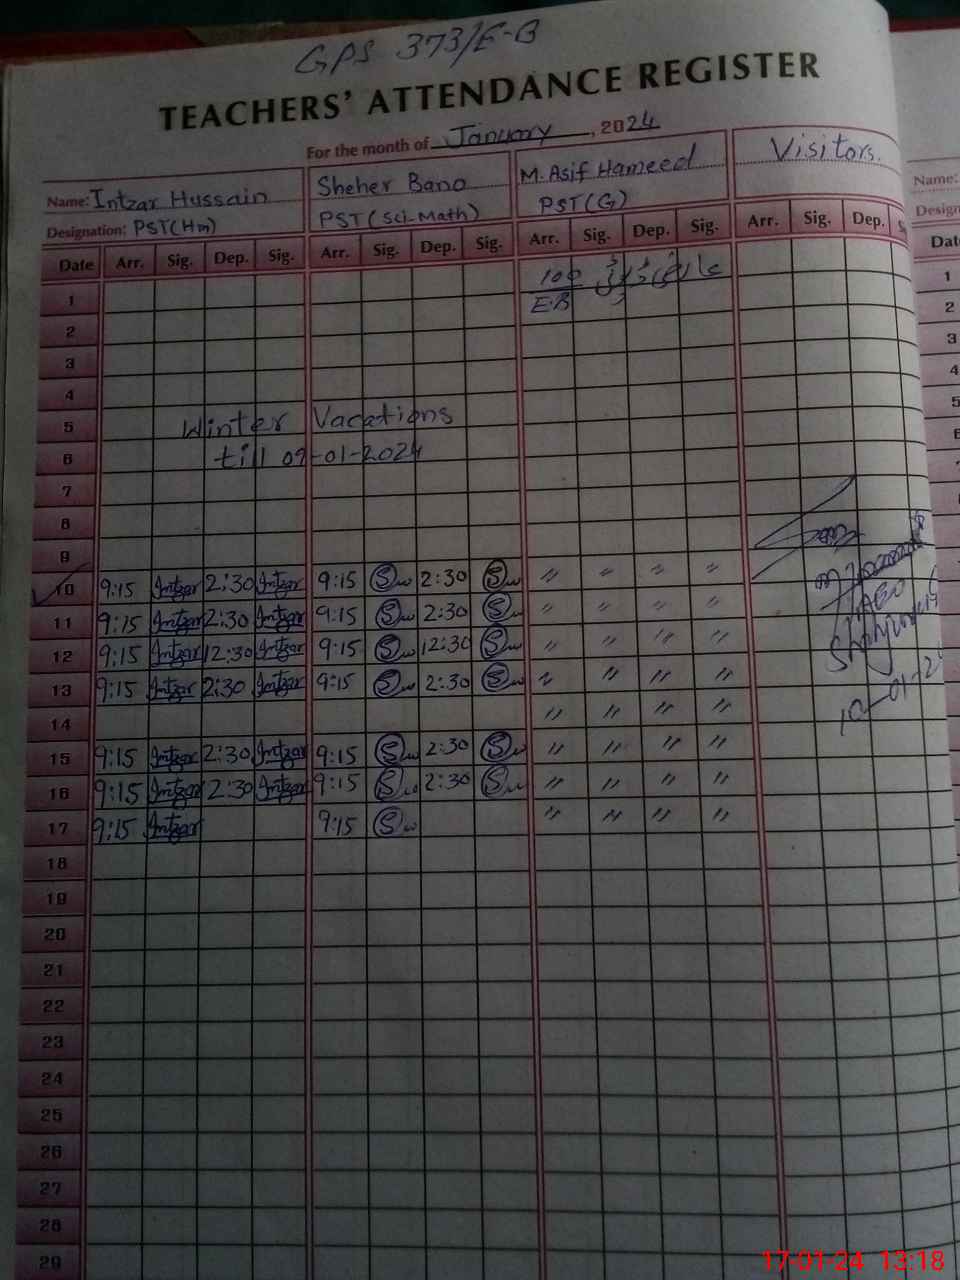 GPS 373/E-B
TEACHERS' ATTENDANCE REGISTER
For the month of January, 2024
Name: Intzar Hussain Sheher Bano M. Asif Hameed Visitors.
Designation: PST(Hm) PST(Sci-Math) PST(G)
Date Arr. Sig. Dep. Sig. Arr. Sig. Dep. Sig. Arr. Sig. Dep. Sig. Arr. Sig. Dep.
1 E.B
2
3
4
5 Winter Vacations
6 till 09-01-2024
7
8
9
10 9:15 Intzar 2:30 Intzar 9:15 S 2:30 S " " " "
11 9:15 Intzar 2:30 Intzar 9:15 S 2:30 S " " " "
12 9:15 Intzar 12:30 Intzar 9:15 S 12:30 S " " " "
13 9:15 Intzar 2:30 Intzar 9:15 S 2:30 S " " " "
14 " " " "
15 9:15 Intzar 2:30 Intzar 9:15 S 2:30 S " " " "
16 9:15 Intzar 2:30 Intzar 9:15 S 2:30 S " " " "
17 9:15 Intzar 9:15 S " " " "
18
19
20
21
22
23
24
25
26
27
28
29
AEO
10-01-2
Name:
Design
Dat
1
2
3
4
5
6
17-01-24 13:18